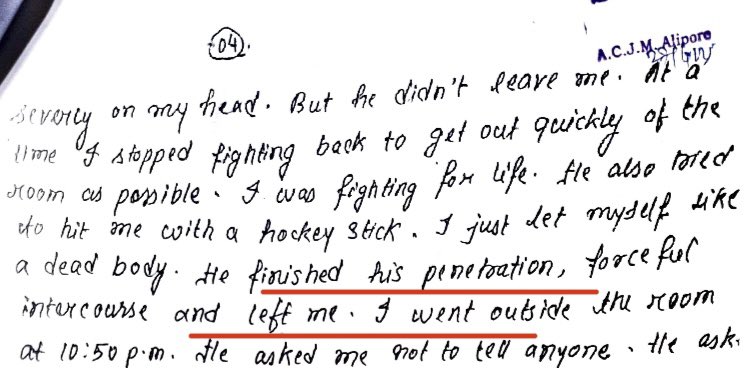 04.
A.C.J.M. Alipore
severely on my head. But he didn't leave me. At a
time I stopped fighting back to get out quickly of the
room as possible. I was fighting for life. He also tried
to hit me with a hockey stick. I just let myself like
a dead body. He finished his penetration, forceful
intercourse and left me. I went outside the room
at 10:50 p.m. He asked me not to tell anyone. He ask